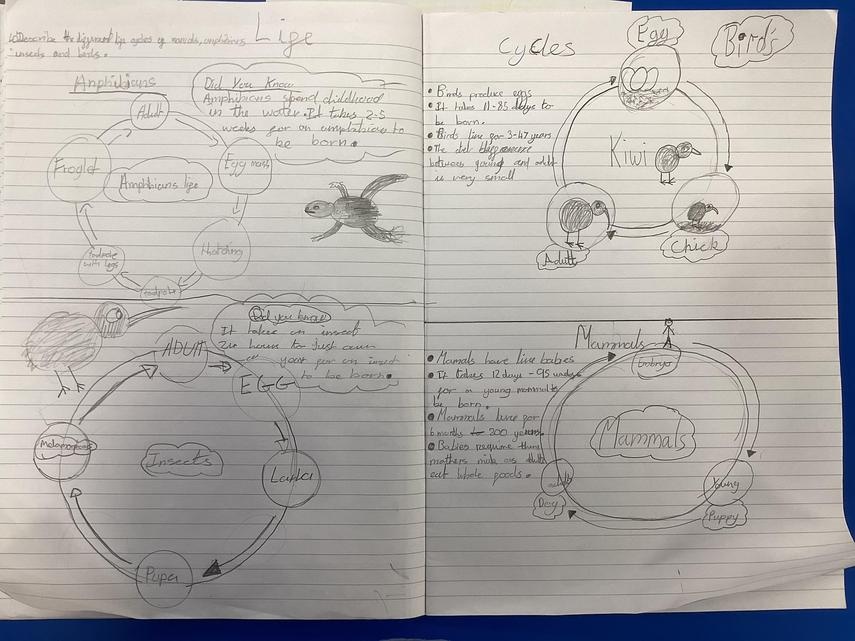 Life
LO Describe the different life cycles of mamals, amphibians,
insects and birds.
Amphibians
Did You Know
Amphibians spend childhood
in the water. It takes 2-5
weeks for an amphibian to
be born.
Adult
Egg mass
Hatching
tadpole
tadpole
with legs
Froglet
Amphibians life
Did you know
It takes an insect
hour to just
year for an insect
to be born.
ADUlt
EGG
Larva
Pupa
Metamorphosis
Insects
Cycles
Bird's
• Birds produce eggs
• It takes 11-85 days to
be born.
• Birds live for 3-47 years.
• The
between young and adult
is very small
Egg
Kiwi
Chick
Adult
Mammals
• Mamals have live babies
• It takes 12 days - 95 weeks
for a young mammal to
be born.
• Mammals live for
6 months to 200 years.
• Babies require their
mothers milk as adults
eat whole foods.
Embryo
Mammals
Young
Puppy
adult
Dog